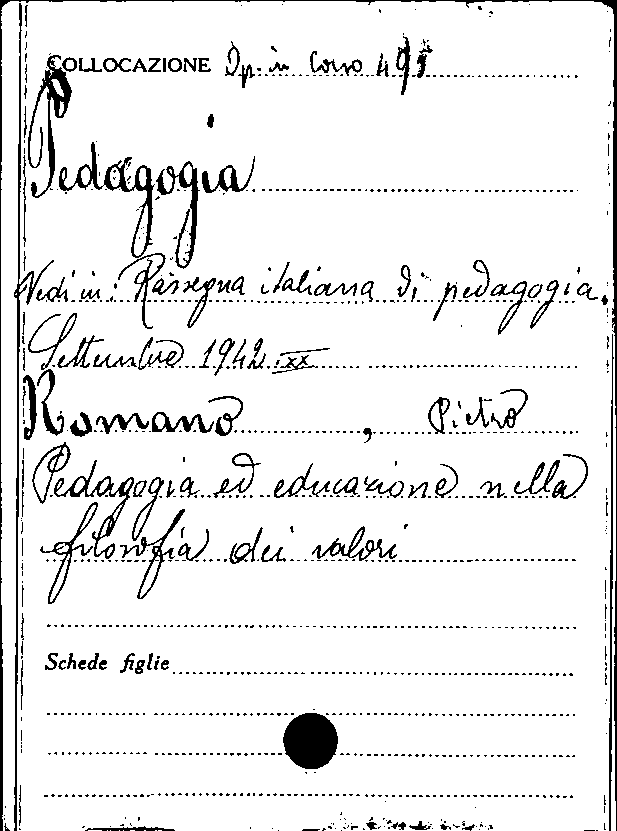 COLLOCAZIONE Op. in Corso 495
Pedagogia
Vedi in: Rassegna italiana di pedagogia.
Settembre 1942.XX
Romano, Pietro
Pedagogia ed educazione nella
filosofia dei valori
Schede figlie